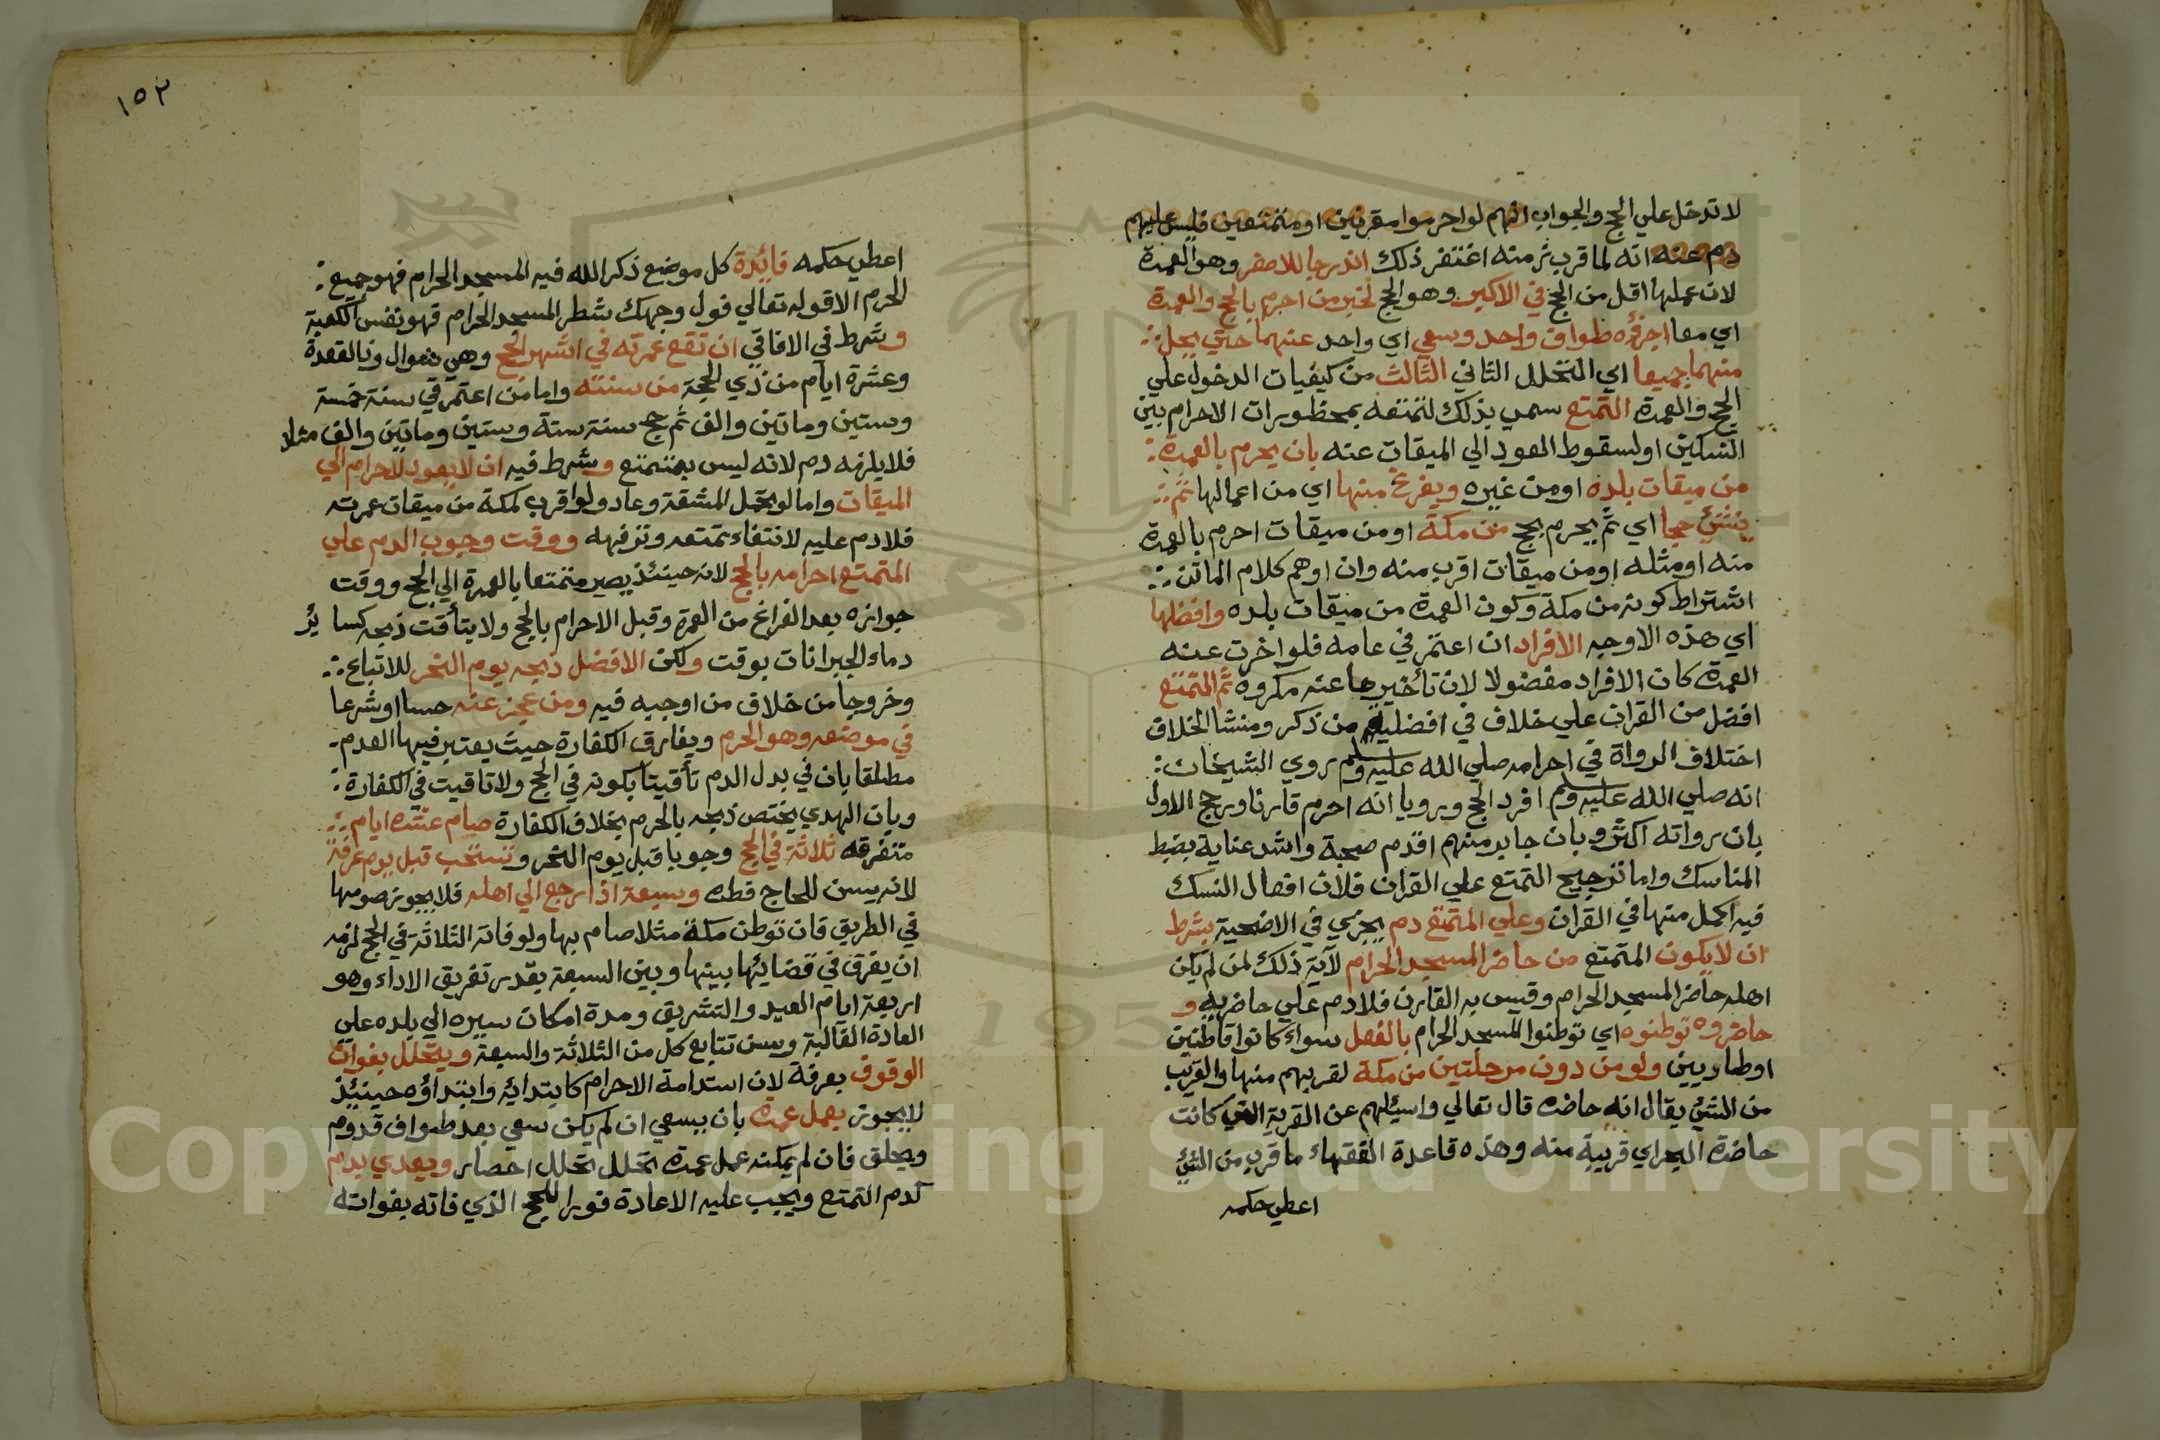 لا تدخل علي الحج والجواب انهم لو احرموا مقرنين او متمتعين فليس عليهم
دم عنه انه لما قرب ثر منه اغتفر ذلك اندرجا للاصغر وهو العمرة
لان عملها اقل من الحج في الاكبر وهو الحج لخبر من احرم بالحج والعمرة
اي معا اجزؤه طواف واحد وسعي اي واحد عنهما حتي يحل
منهما جميعا اي التحلل الثاني الثالث من كيفيات الدخول علي
الحج والعمرة التمتع سمي بذلك لتمتعه بمحظورات الاحرام بين
النسكين او لسقوط العود الي الميقات عنه بان يحرم بالعمرة
من ميقات بلده او من غيره ويفرغ منها اي من اعمالها ثم
ينشئ حجا اي ثم يحرم بحج من مكة او من ميقات احرم بالعمرة
منه او مثله او من ميقات اقرب منه وان اوهم كلام الماتن
اشتراط كونه من مكة وكون العمرة من ميقات بلده وافضلها
اي هذه الاوجه الافراد ان اعتمر في عامه فلو اخرت عنه
العمرة كان الافراد مفضولا لان تأخيرها عنه مكروه ثم التمتع
افضل من القران علي خلاف في افضلية من ذكر ومنشا الخلاف
اختلاف الرواة في احرامه صلي الله عليه وسلم روي الشيخان
انه صلي الله عليه وسلم افرد الحج ورويا انه احرم قارنا ورجح الاول
بان رواته اكثر وبان جابر منهم اقدم صحبة واشد عناية بضبط
المناسك واما ترجيح التمتع علي القران فلان افعال النسك
فيه اكمل منها في القران وعلي المتمتع دم يجزي في الاضحية بشرط
ان لا يكون المتمتع من حاضر المسجد الحرام لآية ذلك لمن لم يكن
اهله حاضر المسجد الحرام وقيس به القارن فلا دم علي حاضريه و
حاضروه توطنوه اي توطنوا المسجد الحرام بالفعل سواء كانوا قاطنين
او طاريين ولو من دون مرحلتين من مكة لقربهم منها والقريب
من الشئ يقال انه حاضره قال تعالي واسئلهم عن القرية التي كانت
حاضرة البحر اي قريبة منه وهذه قاعدة الفقهاء ما قرب من الشئ
اعطي حكمه
١٥٣
اعطي حكمه فائدة كل موضع ذكر الله فيه المسجد الحرام فهو جميع
الحرم الا قوله تعالي فول وجهك شطر المسجد الحرام فهو نفس الكعبة
وشرط في الافاقي ان تقع عمرته في اشهر الحج وهي شوال وذا لقعدة
وعشرة ايام من ذي الحجة من سنته واما من اعتمر في سنة خمسة
وستين وماتين والف ثم حج سنة ستة وستين وماتين والف مثلا
فلا يلزمه دم لانه ليس بمتمتع وشرط فيه ان لا يعود للاحرام الي
الميقات واما لو تحمل المشقة وعاد ولو اقرب لمكة من ميقات عمرته
فلا دم عليه لانتفاء تمتعه وترفهه ووقت وجوب الدم علي
المتمتع احرامه بالحج لانه حينئذ يصير متمتعا بالعمرة الي الحج ووقت
جوازه بعد الفراغ من العمرة وقبل الاحرام بالحج ولا يتأقت ذبحه كسا ئر
دماء الجبرانات بوقت ولكن الافضل ذبحه يوم النحر للاتباع
وخروجا من خلاف من اوجبه فيه ومن عجز عنه حسا او شرعا
في موضعه وهو الحرم ويفارق الكفارة حيث يعتبر فيها العدم
مطلقا بان في بدل الدم تأقيتا بكونه في الحج ولا تاقيت في الكفارة
وبان الهدي يختص ذبحه بالحرم بخلاف الكفارة صيام عشرة ايام
متفرقه ثلاثة في الحج وجوبا قبل يوم النحر وتستحب قبل يوم عرفة
لانه يسن للحاج فطره وسبعة اذا رجع الي اهله فلا يجوز صومها
في الطريق فان توطن مكة مثلا صام بها ولو فاته الثلاثة في الحج لزمه
ان يفرق في قضائها بينها وبين السبعة بقدر تفريق الاداء وهو
اربعة ايام العيد والتشريق ومدة امكان سيره الي بلده علي
العادة الغالبة وسن تتابع كل من الثلاثة والسبعة ويتحلل بفوات
الوقوف بعرفة لان استدامة الاحرام كابتدائه وابتداؤه حينئذ
لا يجوز بعمل عمرة بان يسعي ان لم يكن سعي بعد طواف قدوم
ويحلق فان لم يمكنه عمل عمرة تحلل تحلل احصار ويهدي بدم
كدم التمتع ويجب عليه الاعادة فورا للحج الذي فاته بفواته
Copyright © King Saud University
195